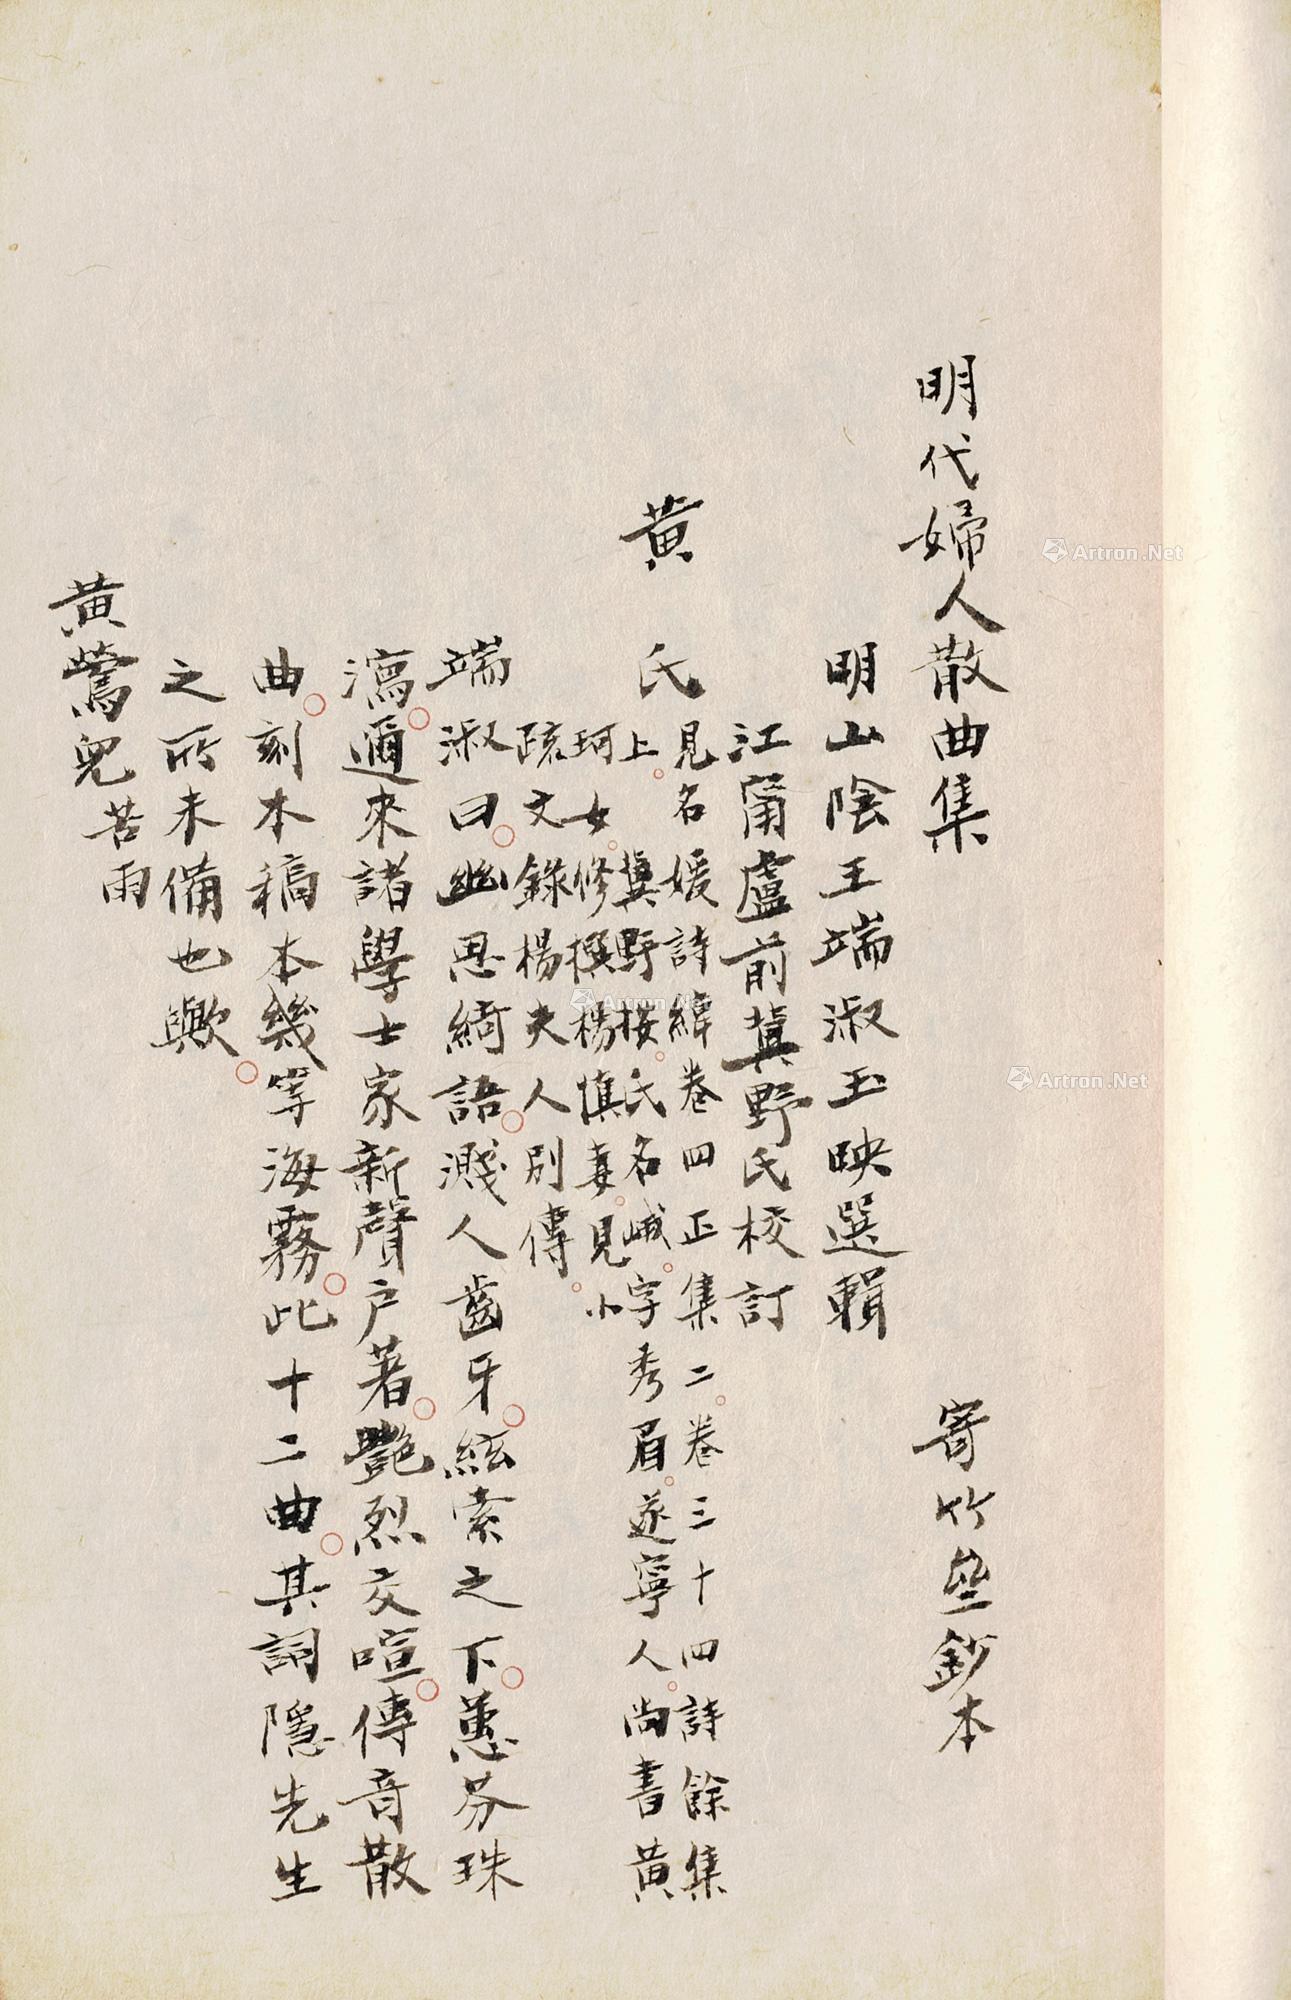 明代婦人散曲集
寄竹垒鈔本
明山陰王端淑玉映選輯
江甯盧前冀野氏校訂
黄氏
見名媛詩緯卷四正集二。卷三十四詩餘集
上。冀野按。氏名峨。字秀眉。遂寧人。尚書黄
珂女。修撰楊慎妻。見小
疏文錄楊夫人别傳。
端淑曰。幽思綺語。濺人齒牙。絃索之下。蕙芬珠
瀉。邇來諸學士家新聲户著。艷烈交喧。傳音散
曲。刻本稿本幾等海霧。此十二曲。其詞隱先生
之所未備也歟。
黄鶯兒苦雨
Artron.Net
Artron.Net
Artron.Net